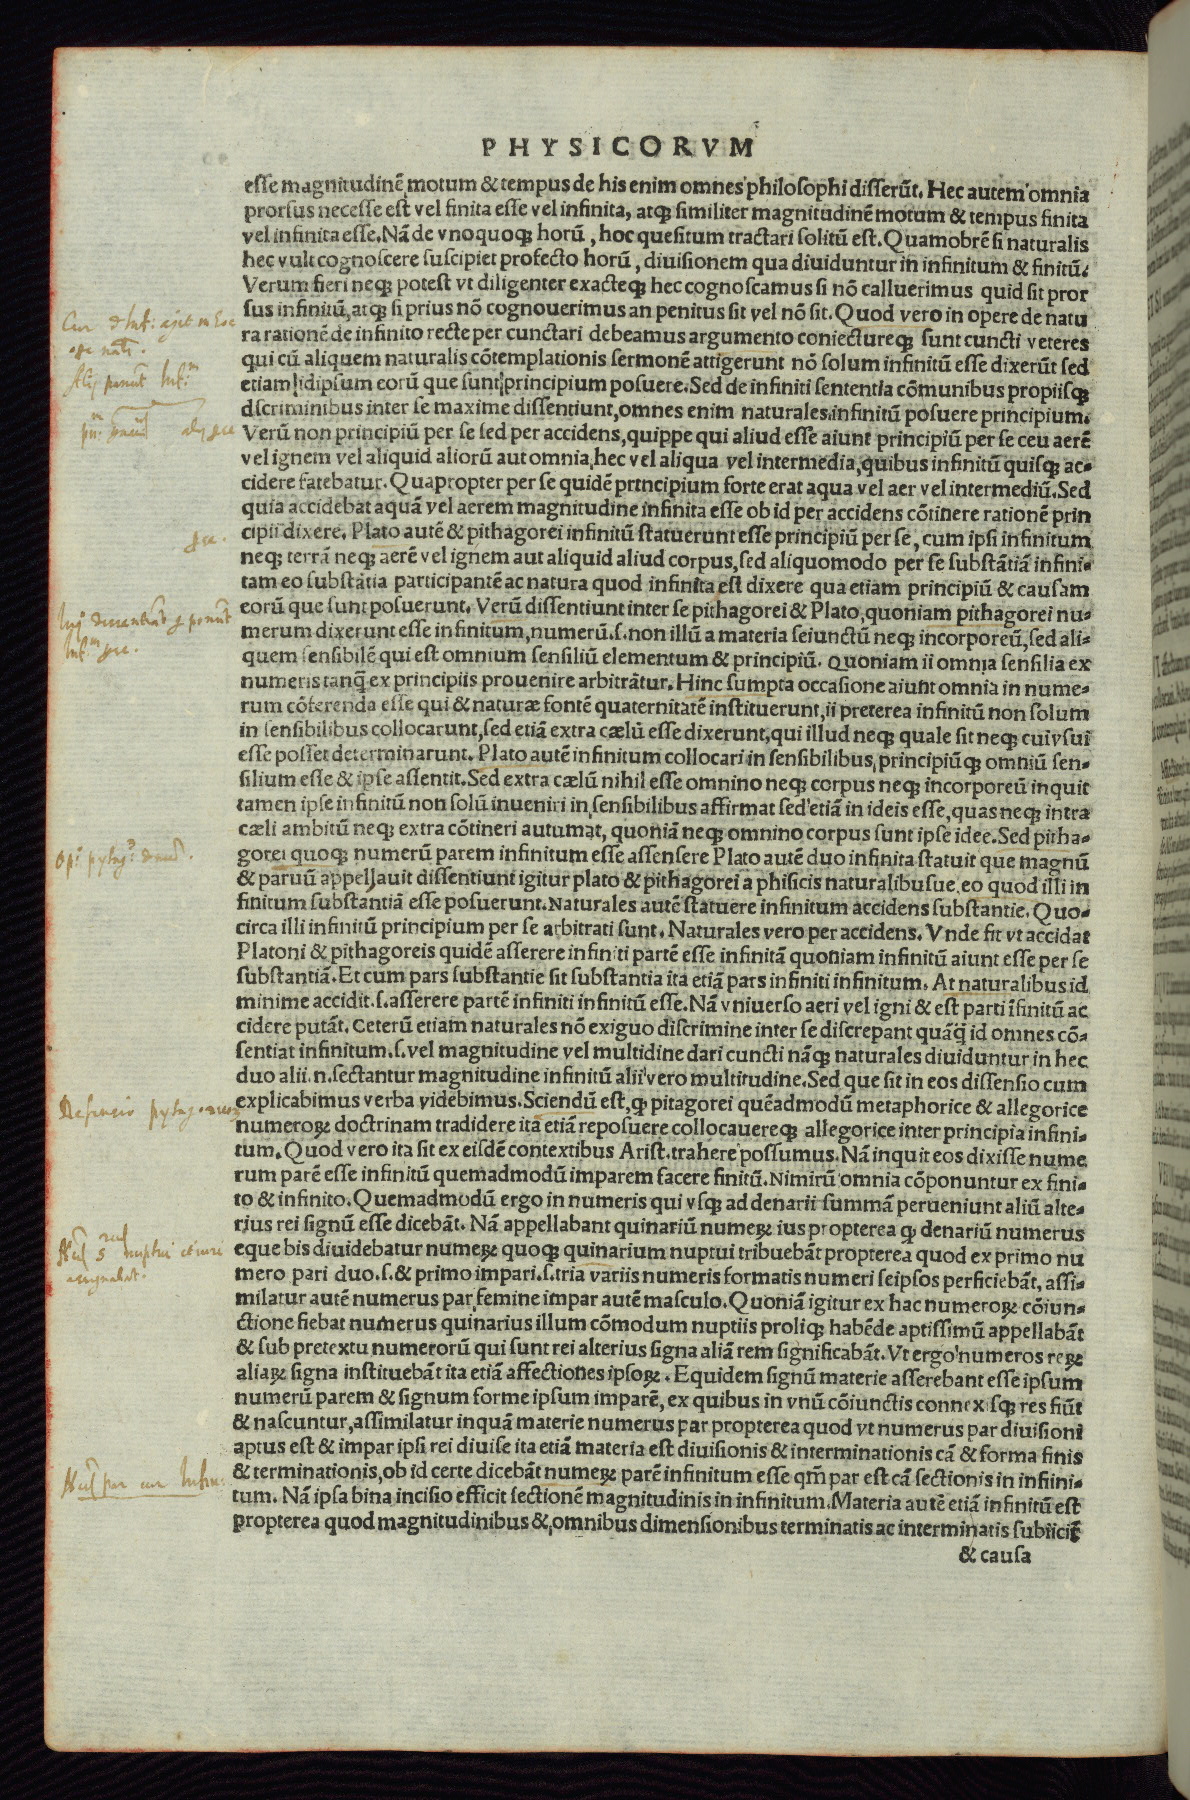 PHYSICORVM
esse magnitudinē motum & tempus de his enim omnes philosophi disserūt. Hec autem omnia
prorsus necesse est vel finita esse vel infinita, atq; similiter magnitudinē motum & tempus finita
vel infinita esse. Nā de vnoquoq; horū, hoc quesitum tractari solitū est. Quamobrē si naturalis
hec vult cognoscere suscipiet profecto horū, diuisionem qua diuiduntur in infinitum & finitū.
Verum fieri neq; potest vt diligenter exacteq; hec cognoscamus si nō calluerimus quid sit pror
sus infinitū, atq; si prius nō cognouerimus an penitus sit vel nō sit. Quod vero in opere de natu
ra rationē de infinito recte per cunctari debeamus argumento coniectureq; sunt cuncti veteres
qui cū aliquem naturalis cōtemplationis sermonē attigerunt nō solum infinitū esse dixerūt sed
etiam idipsum eorū que sunt principium posuere. Sed de infiniti sententia cōmunibus propiisq;
dscriminibus inter se maxime dissentiunt, omnes enim naturales infinitū posuere principium.
Verū non principiū per se sed per accidens, quippe qui aliud esse aiunt principiū per se ceu aerē
vel ignem vel aliquid aliorū aut omnia, hec vel aliqua vel intermedia, quibus infinitū quisq; ac-
cidere fatebatur. Quapropter per se quidē principium forte erat aqua vel aer vel intermediū. Sed
quia accidebat aquā vel aerem magnitudine infinita esse ob id per accidens cōtinere rationē prin
cipii dixere. Plato autē & pithagorei infinitū statuerunt esse principiū per se, cum ipsi infinitum
neq; terrā neq; aerē vel ignem aut aliquid aliud corpus, sed aliquomodo per se substātiā infini-
tam eo substātia participantē ac natura quod infinita est dixere qua etiam principiū & causam
eorū que sunt posuerunt. Verū dissentiunt inter se pithagorei & Plato, quoniam pithagorei nu-
merum dixerunt esse infinitum, numerū .s. non illū a materia seiunctū neq; incorporeū, sed ali-
quem sensibilē qui est omnium sensiliū elementum & principiū. Quoniam ii omnia sensilia ex
numeris tanq̄ ex principiis prouenire arbitrātur. Hinc sumpta occasione aiunt omnia in nume-
rum cōferenda esse qui & naturæ fontē quaternitatē instituerunt, ii preterea infinitū non solum
in sensibilibus collocarunt, sed etiā extra cælū esse dixerunt, qui illud neq; quale sit neq; cuivsui
esse posset determinarunt. Plato autē infinitum collocari in sensibilibus, principiūq; omniū sen-
silium esse & ipse assentit. Sed extra cælū nihil esse omnino neq; corpus neq; incorporeū inquit
tamen ipse infinitū non solū inueniri in sensibilibus affirmat sed etiā in ideis esse, quas neq; intra
cæli ambitū neq; extra cōtineri autumat, quoniā neq; omnino corpus sunt ipse idee. Sed pitha-
gorei quoq; numerū parem infinitum esse assensere Plato autē duo infinita statuit que magnū
& paruū appellauit dissentiunt igitur plato & pithagorei a phisicis naturalibusue, eo quod illi in
finitum substantiā esse posuerunt. Naturales autē statuere infinitum accidens substantie. Quo-
circa illi infinitū principium per se arbitrati sunt. Naturales vero per accidens. Vnde fit vt accidat
Platoni & pithagoreis quidē asserere infiniti partē esse infinitā quoniam infinitū aiunt esse per se
substantiā. Et cum pars substantie sit substantia ita etiā pars infiniti infinitum. At naturalibus id
minime accidit .s. asserere partē infiniti infinitū esse. Nā vniuerso aeri vel igni & est parti īfinitū ac
cidere putāt. Ceterū etiam naturales nō exiguo discrimine inter se discrepant quāq̄ id omnes cō-
sentiat infinitum .s. vel magnitudine vel multidine dari cuncti nāq; naturales diuiduntur in hec
duo alii .n. sectantur magnitudine infinitū alii vero multitudine. Sed que sit in eos dissensio cum
explicabimus verba videbimus. Sciendū est, q; pitagorei quēadmodū metaphorice & allegorice
numeroꝝ doctrinam tradidere ita etiā reposuere collocauereq; allegorice inter principia infini-
tum. Quod vero ita sit ex eisdē contextibus Arist. trahere possumus. Nā inquit eos dixisse nume
rum parē esse infinitū quemadmodū imparem facere finitū. Nimirū omnia cōponuntur ex fini-
to & infinito. Quemadmodū ergo in numeris qui vsq; ad denarii summā perueniunt aliū alte-
rius rei signū esse dicebāt. Nā appellabant quinariū numeꝝ ius propterea q; denariū numerus
eque bis diuidebatur numeꝝ quoq; quinarium nuptui tribuebāt propterea quod ex primo nu
mero pari duo .s. & primo impari .s. tria variis numeris formatis numeri seipsos perficiebāt, assi-
milatur autē numerus par femine impar autē masculo. Quoniā igitur ex hac numeroꝝ cōiun-
ctione fiebat numerus quinarius illum cōmodum nuptiis proliq; habēde aptissimū appellabāt
& sub pretextu numerorū qui sunt rei alterius signa aliā rem significabāt. Vt ergo numeros reꝝ
aliaꝝ signa instituebāt ita etiā affectiones ipsoꝝ. Equidem signū materie asserebant esse ipsum
numerū parem & signum forme ipsum imparē, ex quibus in vnū cōiunctis connexisq; res fiūt
& nascuntur, assimilatur inquā materie numerus par propterea quod vt numerus par diuisioni
aptus est & impar ipsi rei diuise ita etiā materia est diuisionis & interminationis cā & forma finis
& terminationis, ob id certe dicebāt numeꝝ parē infinitum esse qm̄ par est cā sectionis in infini-
tum. Nā ipsa bina incisio efficit sectionē magnitudinis in infinitum. Materia autē etiā infinitū est
propterea quod magnitudinibus & omnibus dimensionibus terminatis ac interminatis subiicit̄
& causa